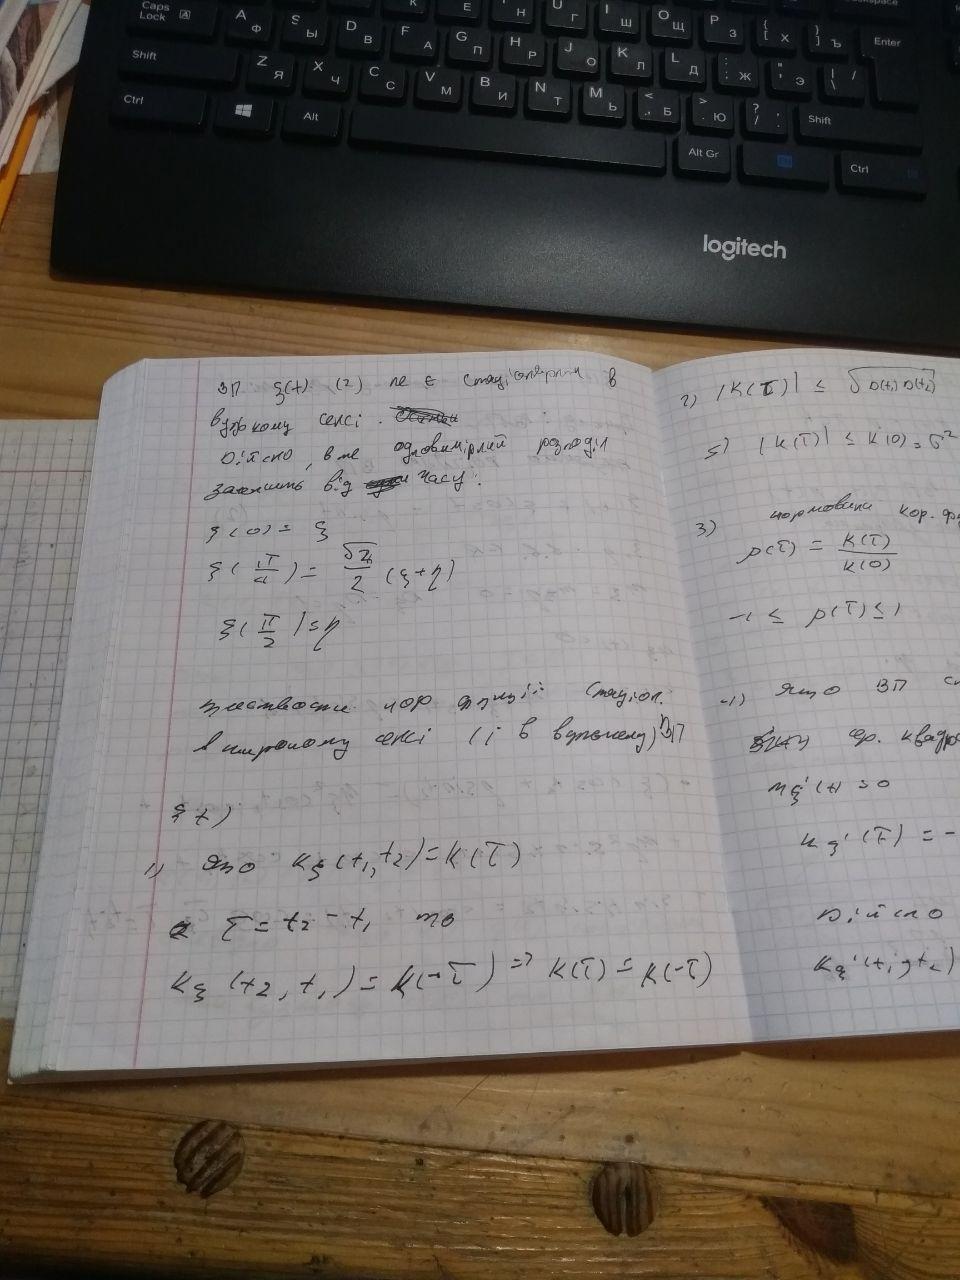 Caps Lock A
A Ф
S Ы
D В
F А
G П
H Р
J О
K Л
L Д
: ; Ж
" ' Э
Enter
Shift
Z Я
X Ч
C С
V М
B И
N Т
M Ь
< , Б
> . Ю
? / .
Shift
Ctrl
Alt
Alt Gr
Ctrl
logitech
ВП ξ(t) (2) не є стаціонарним в
вузькому сенсі.
Дійсно, в не одновимірний розподіл
залежить від часу:
ξ(0) = ξ
ξ(π/4) = √2/2 (ξ+η)
ξ(π/2) = η
кор функції стаціон.
в широкому сенсі (і в вузькому) ВП
ξ t)
1) якщо Kξ(t₁, t₂) = K(τ)
τ = t₂ - t₁ то
Kξ(t₂, t₁) = K(-τ) => K(τ) = K(-τ)
2) |K(τ)| ≤ √D(t₁)D(t₂)
|K(τ)| ≤ K(0) = σ²
3) нормована кор. ф
ρ(τ) = K(τ)/K(0)
-1 ≤ ρ(τ) ≤ 1
якщо ВП с
ср. квадр
mξ'(t) = 0
Kξ'(τ) = -
Дійсно
Kξ'(t₁, t₂)